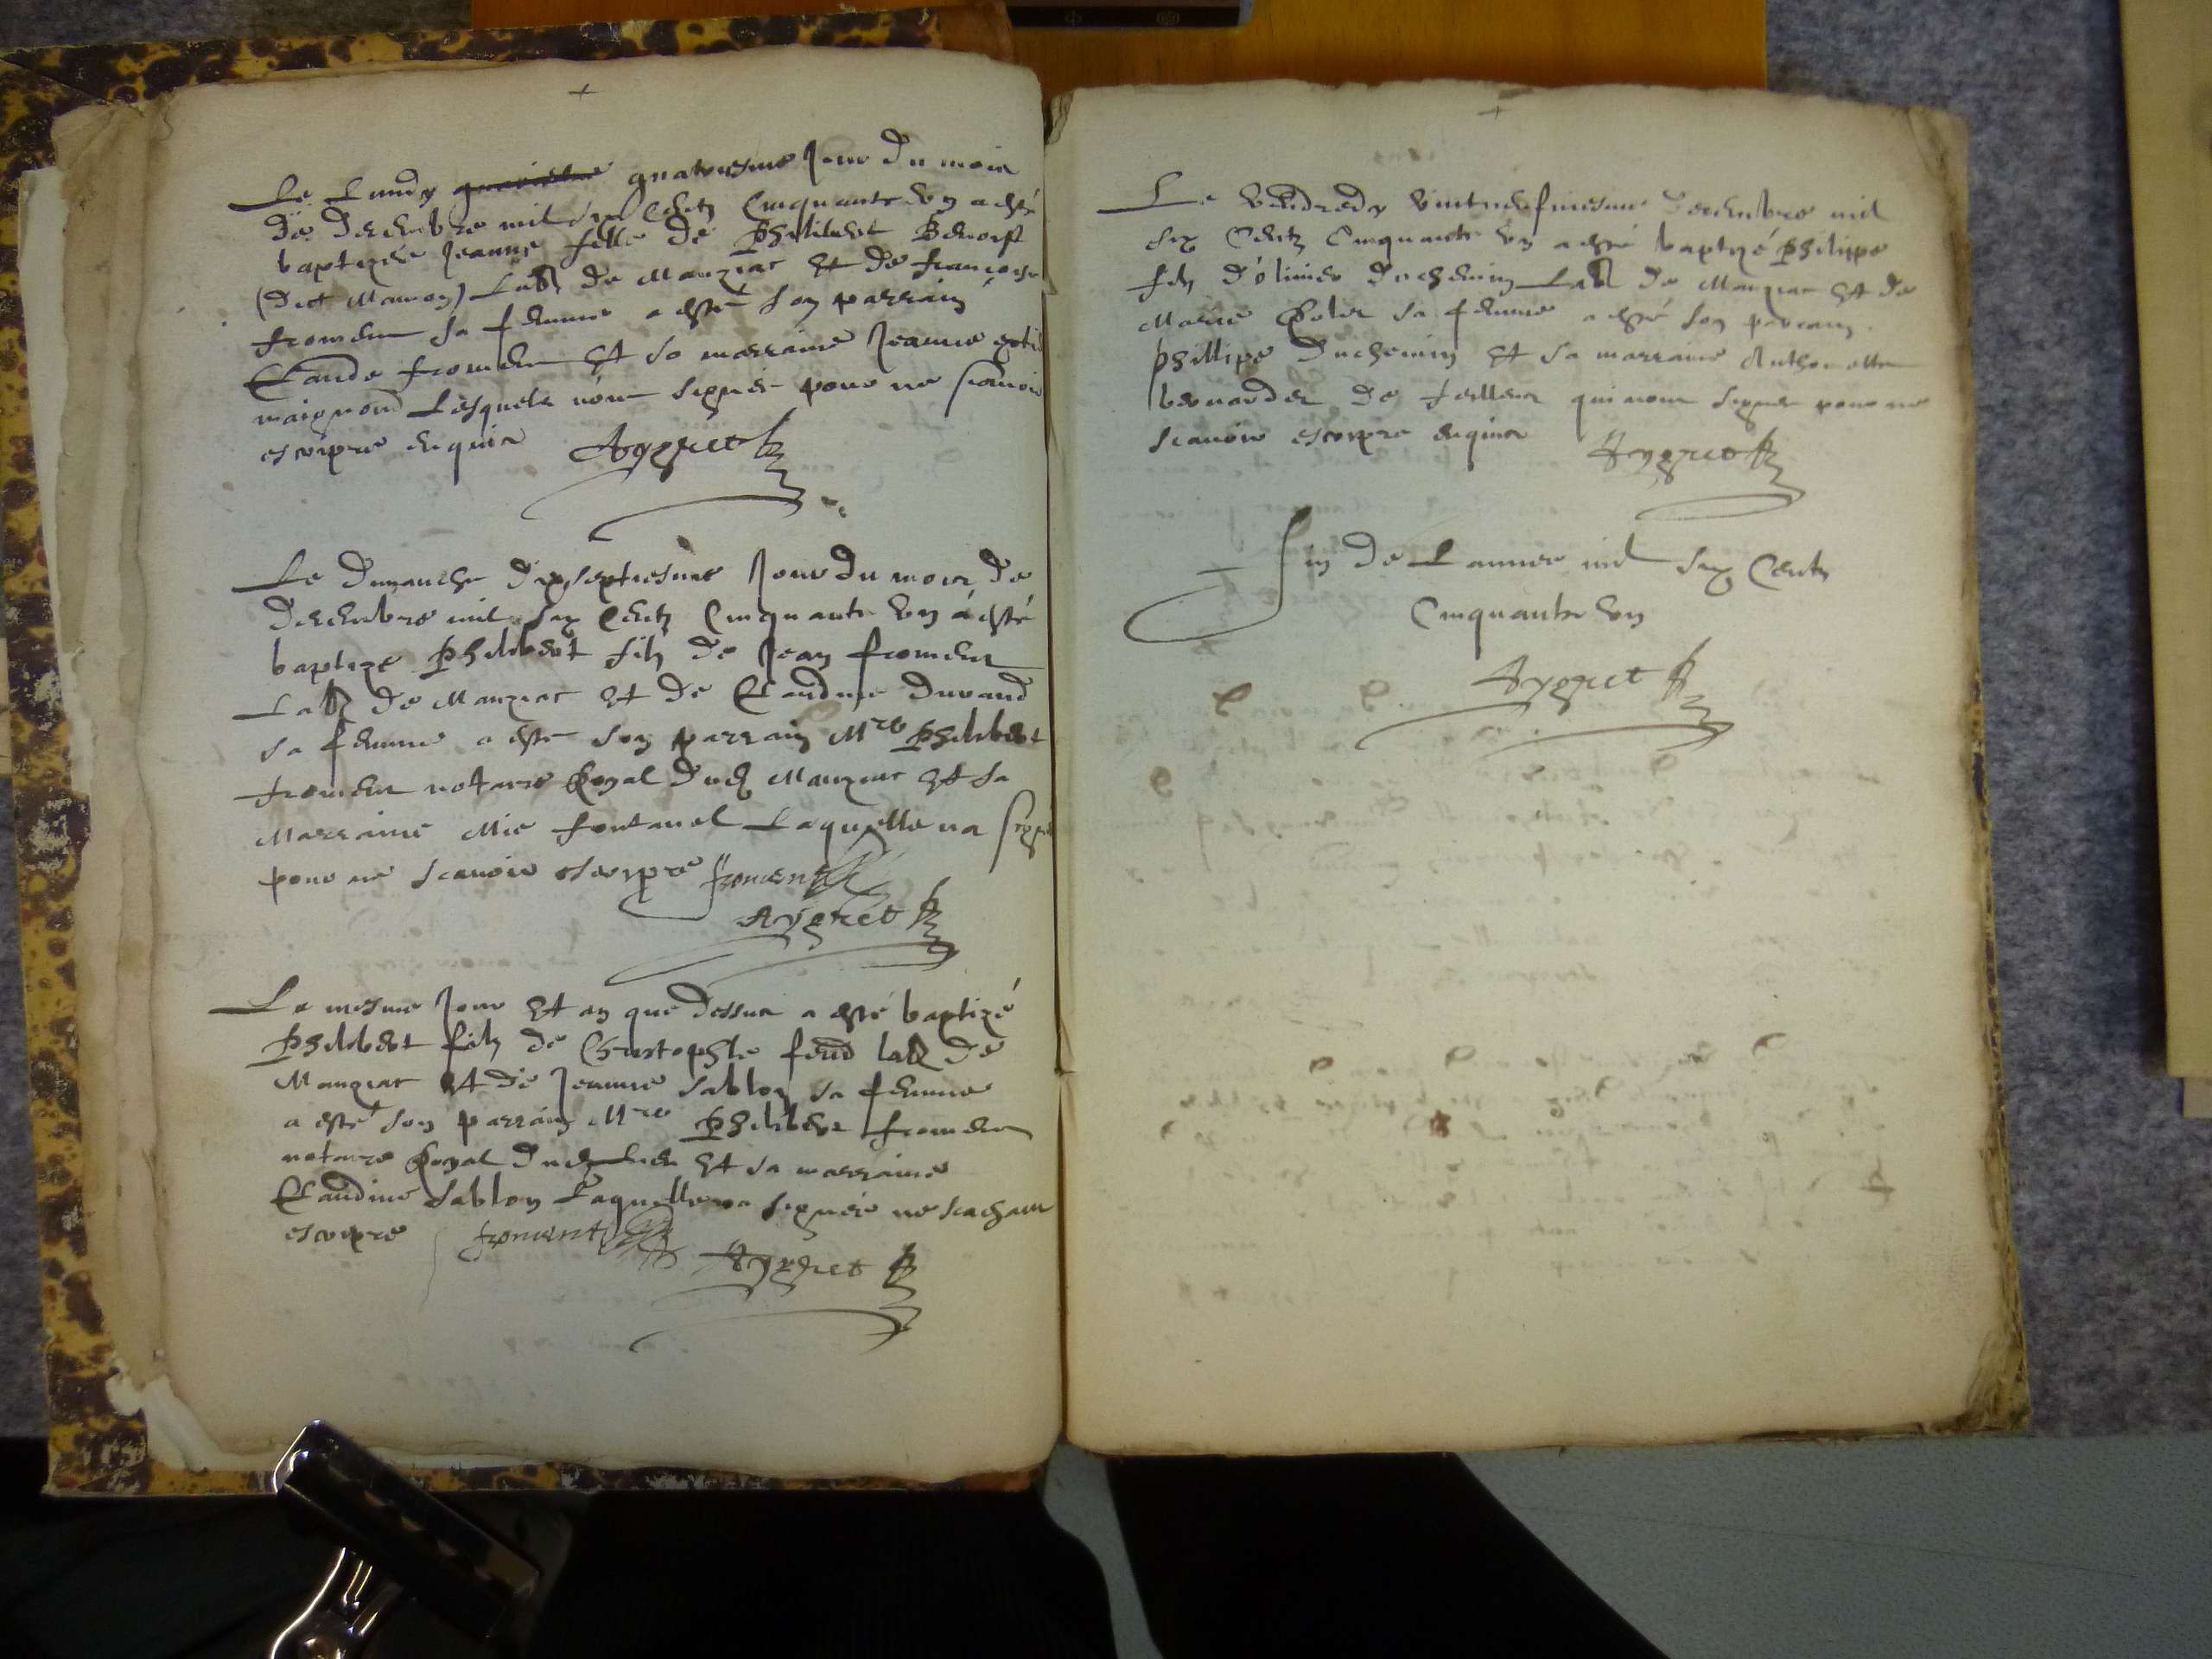 Le Lundy quatorsme Jour du mois
de decembre mil six Centz Cinquante Un a esté
baptizée Jeanne fille de Philibert Benoist
(dict Mamon) Lab^r de Manziat Et de francoise
froment sa femme a esté son parrain
Claude froment Et sa marraine Jeanne
Lesquelz nont signés pour ne scavoir
escripre enquis Aygret
Le dimanche dixseptiesme Jour du mois de
decembre mil six Centz Cinquante Un á esté
baptizé Philibert filz de Jean froment
Lab^r de Manziat Et de Claudine Durand
sa femme a esté son parrain M^re Philibert
froment notaire Royal dud Manziat Et sa
Marraine Mie fontanel Laquelle na signé
pour ne scavoir escripre froment
Aygret
Le mesme Jour Et an que dessus a esté baptizé
Philibert filz de Christophle feud lab^r de
Manziat Et de Jeanne Sablon sa femme
a esté son parrain M^re Philibert froment
notaire Royal dud Lieu Et sa marraine
Claudine Sablon Laquelle na signée ne scachant
escripre froment Aygret
Le Vendredy Vintneufviesme decembre mil
six Centz Cinquante Un a esté baptizé Philippe
filz d'olivier duchemin Lab^r de Manziat Et de
Marie sa femme a esté son parrain
phillipe duchemin Et sa marraine Anthoinette
de qui nont signé pour ne
scavoir escripre enquis Aygret
fin de Lannee mil six Centz
Cinquante Un
Aygret